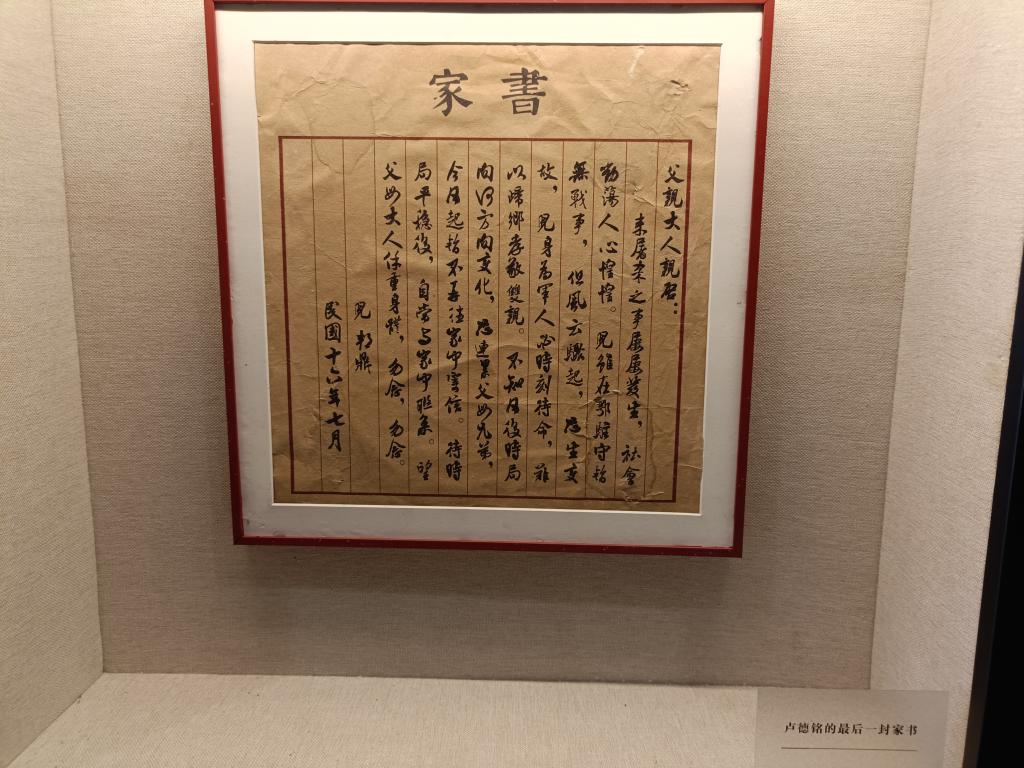 家書
父親大人親啓：
来屠杀之事屢屢發生，社會
動蕩人心惶惶。兒雖在鄂駐守暂
無戰事，但風云驟起，恐生变
故，兒身為軍人必時刻待命，難
以歸鄉孝敬雙親。不知日後時局
向何方向变化，恐連累父母兄弟，
今日起暂不再往家中寄信。待時
局平穩後，自當与家中联系。望
父母大人保重身體，勿念，勿念。
兒邦鼎
民國十六年七月
卢德铭的最后一封家书